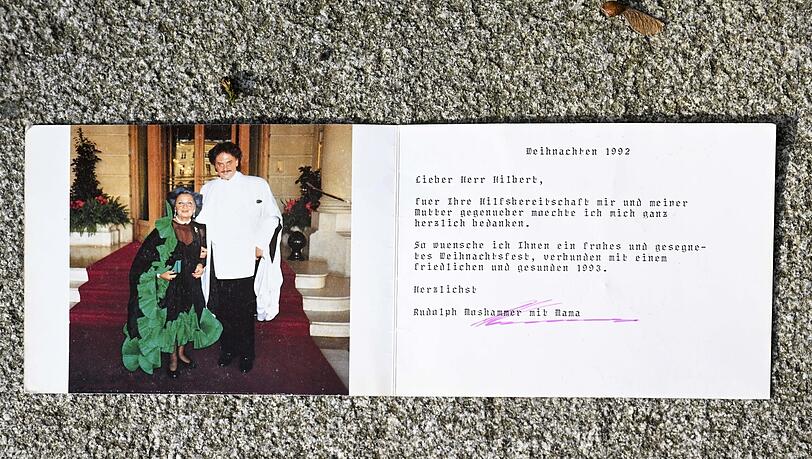 Weihnachten 1992
Lieber Herr Hilbert,
fuer Ihre Hilfsbereitschaft mir und meiner
Mutter gegenueber moechte ich mich ganz
herzlich bedanken.
So wuensche ich Ihnen ein frohes und gesegne-
tes Weihnachtsfest, verbunden mit einem
friedlichen und gesunden 1993.
Herzlichst
Rudolph Moshammer mit Mama